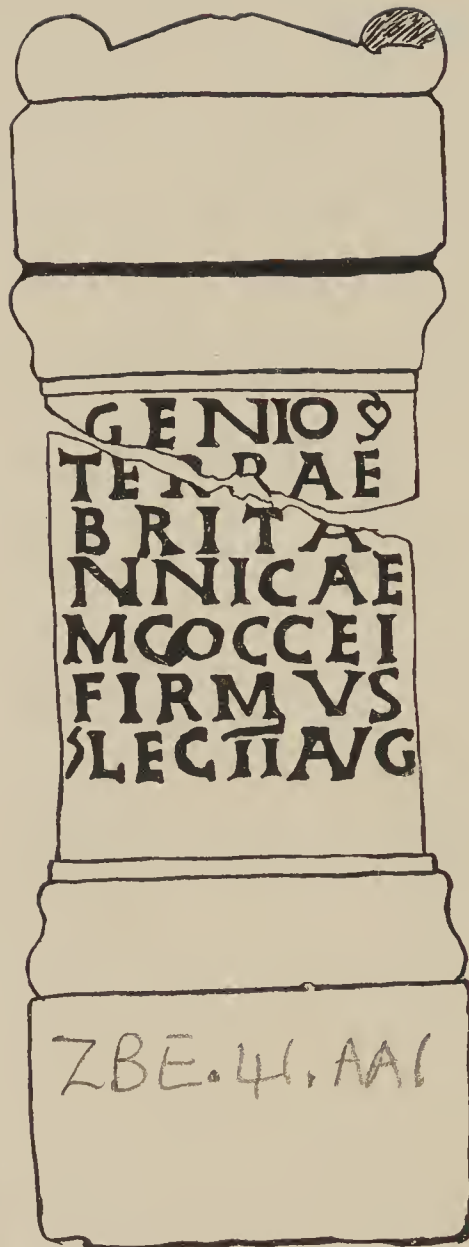 GENIO
TERRAE
BRITA
NNICAE
M COCCEI
FIRMVS
LEG II AVG
ZBE.41.AA1